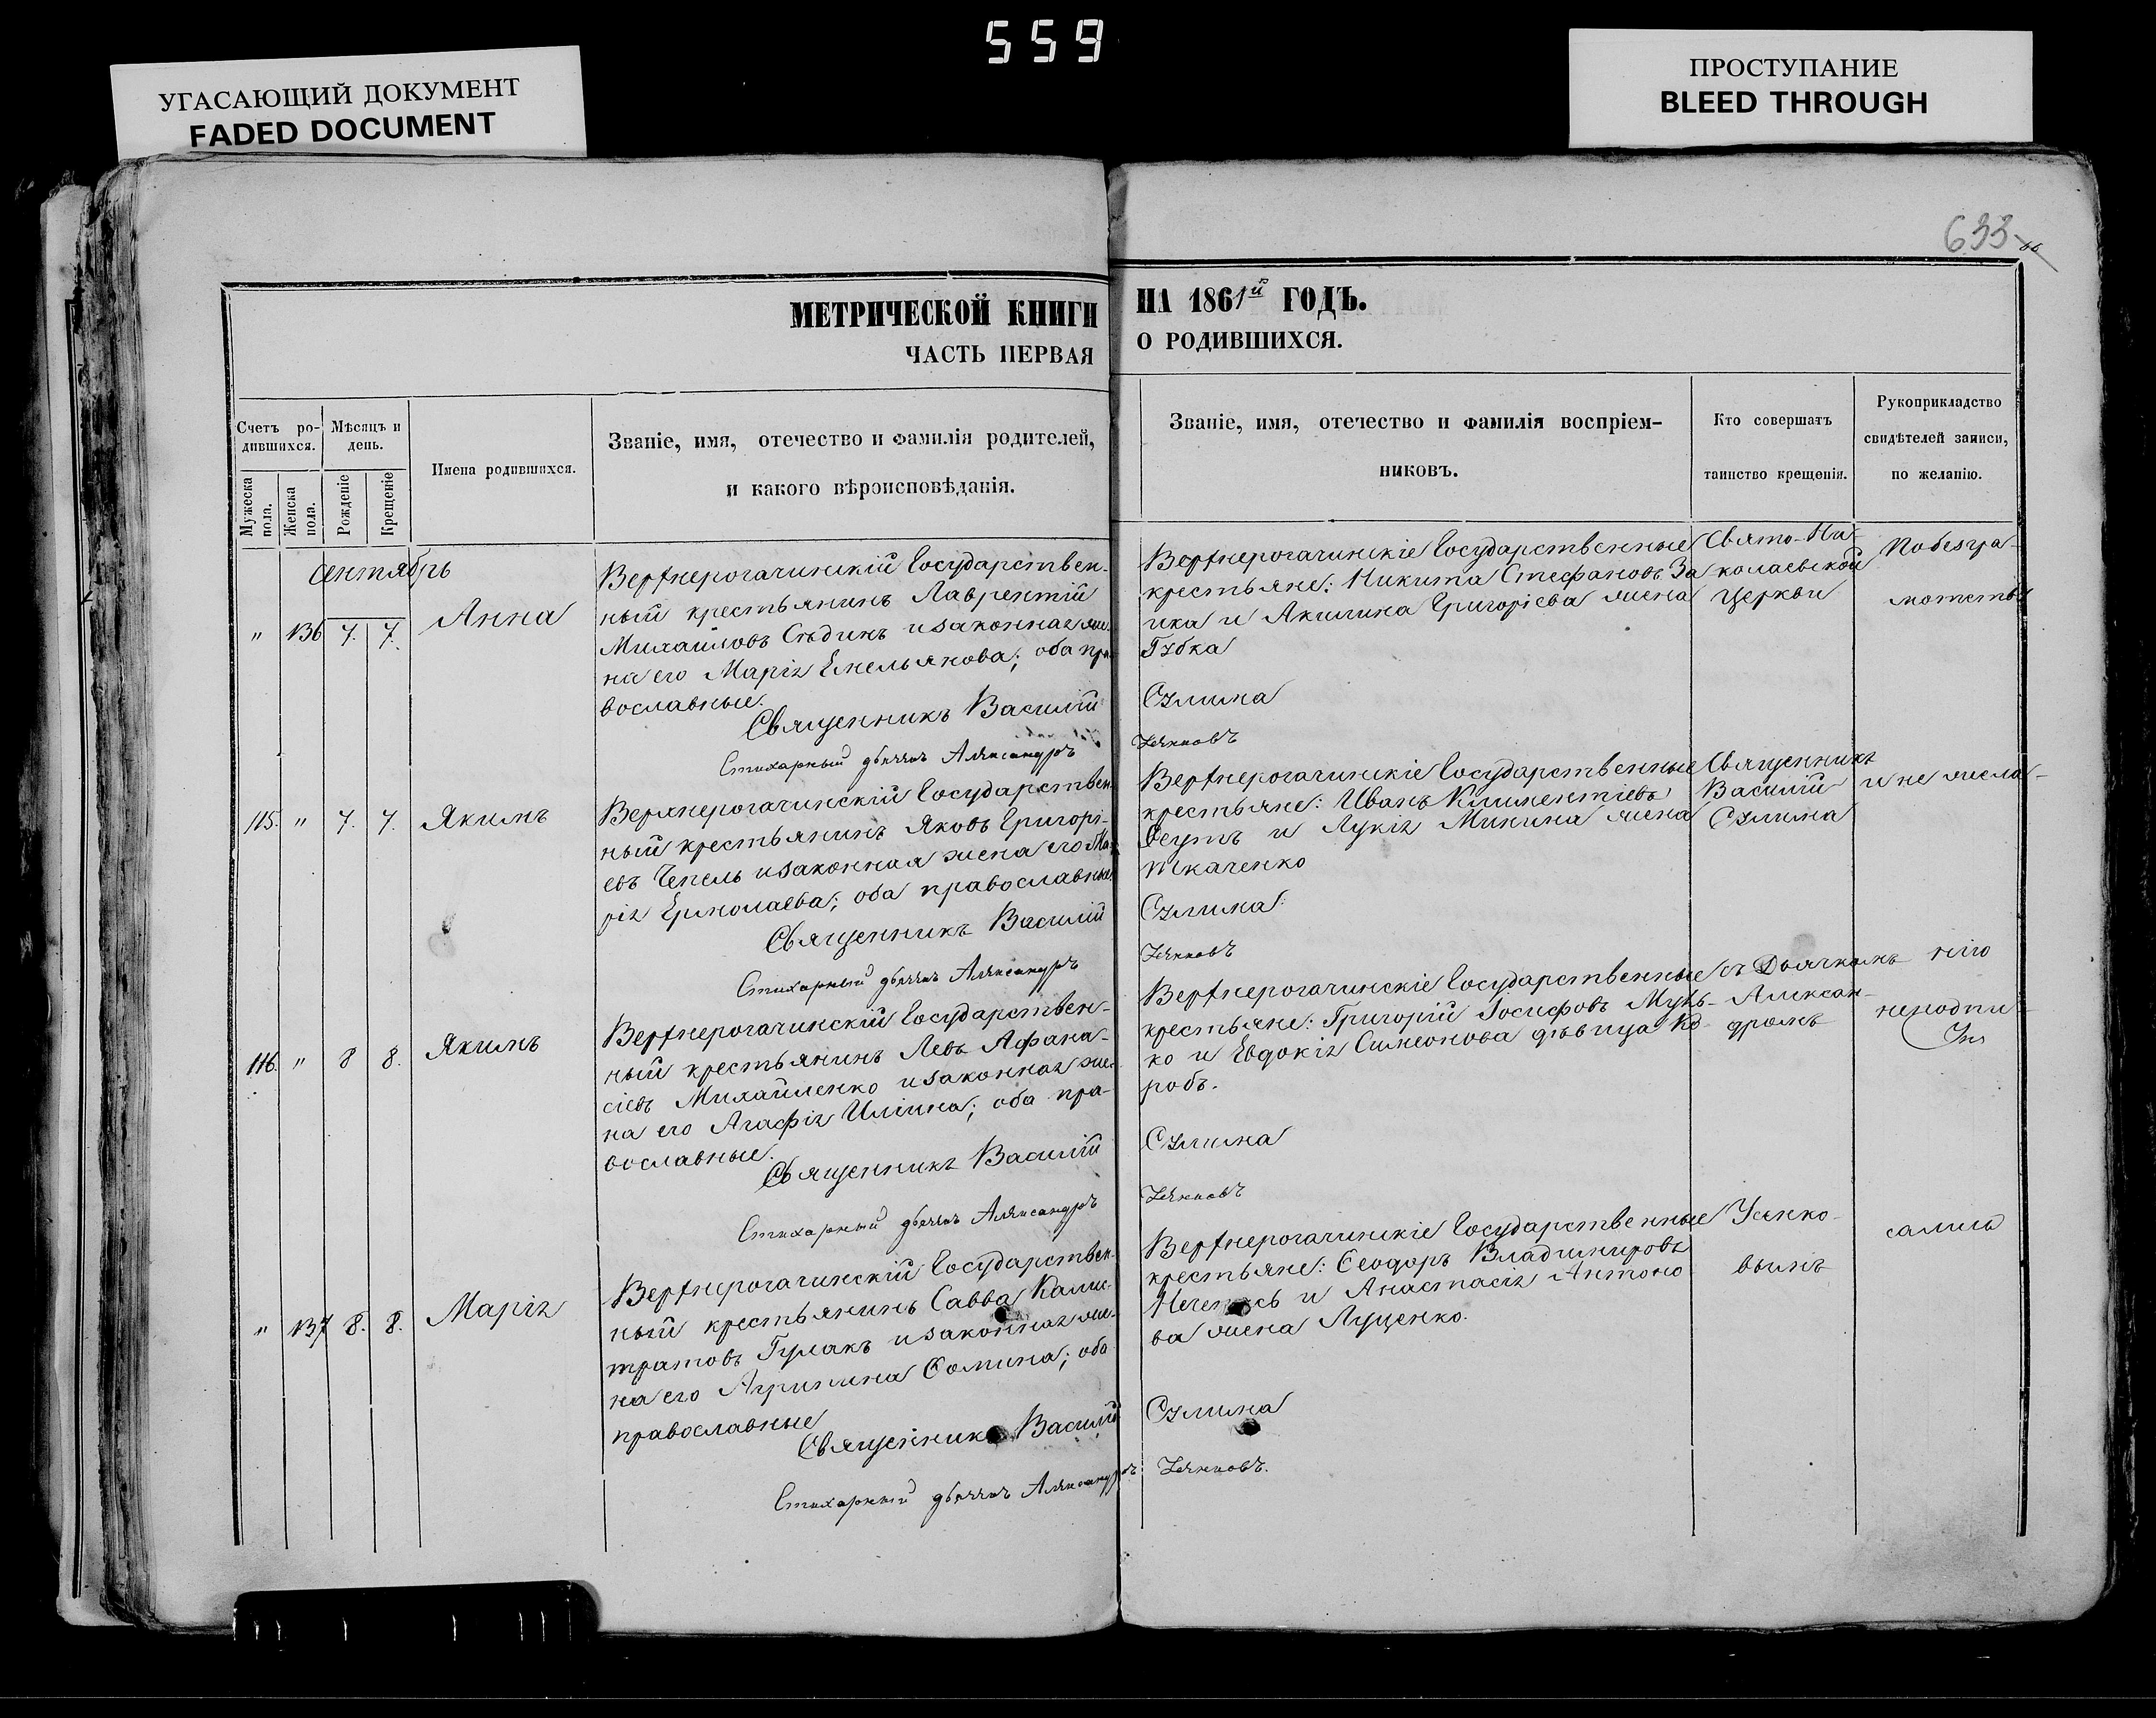 559
УГАСАЮЩИЙ ДОКУМЕНТ
FADED DOCUMENT
ПРОСТУПАНИЕ
BLEED THROUGH
633
МЕТРИЧЕСКОЙ КНИГИ НА 1861й ГОДЪ.
ЧАСТЬ ПЕРВАЯ О РОДИВШИХСЯ.
Счетъ ро-
дившихся.
Мужеска
пола.
Женска
пола.
Мѣсяцъ и
день.
Рожденіе
Крещеніе
Имена родившихся.
Званіе, имя, отечество и фамилія родителей,
и какого вѣроисповѣданія.
Званіе, имя, отечество и фамилія воспріем-
никовъ.
Кто совершалъ
таинство крещенія.
Рукоприкладство
свидѣтелей записи,
по желанію.
Сентябрь
" 136 7. 7.
Анна
Верхнерогачинскій Государствен-
ный крестьянинъ Лаврентій
Михайловъ Сѣдинъ и законная же-
на его Марія Емельянова; оба пра-
вославные.
Священникъ Василій
Стихарный дьячекъ Александръ
Верхнерогачинскіе Государственные
крестьяне: Никита Стефановъ За
ика и Акилина Григоріева жена
Губка
Сулима
Усенковъ
Свято-Ни-
колаевской
Церкви
По безгра-
мотству
115. " 7. 7.
Якимъ
Верхнерогачинскій Государствен
ный крестьянинъ Яковъ Григорі-
евъ Чепель и законная жена его Ма-
рія Ермолаева; оба православные.
Священникъ Василій
Стихарный дьячекъ Александръ
Верхнерогачинскіе Государственные
крестьяне: Иванъ Климентіевъ
и Лукія Минина жена
Ткаченко
Сулима.
Усенковъ
Священникъ
Василій
Сулима
116. " 8 8.
Якимъ
Верхнерогачинскій Государствен-
ный крестьянинъ Левъ Афана-
сіевъ Михайленко и законная же-
на его Агафія Иліина; оба пра-
вославные.
Священникъ Василій
Стихарный дьячекъ Александръ
Верхнерогачинскіе Государственные
крестьяне: Григорій Іосифовъ Мунь-
ко и Евдокія Симеонова дѣвица Ко
робъ.
Сулима
Усенковъ
съ Дьячкомъ
Алексан-
дромъ
нію
неподпи-
" 137 8. 8.
Марія
Верхнерогачинскій Государствен-
ный крестьянинъ Савва Калис-
тратовъ Гулакъ и законная же-
на его Агрипина Ѳомина; оба
православные
Священникъ Василій
Стихарный дьячекъ Александръ
Верхнерогачинскіе Государственные
крестьяне: Ѳеодоръ Владимировъ
и Анастасія Антоно
ва жена Луценко.
Сулима
Усенковъ.
Усенко-
вымъ
сались